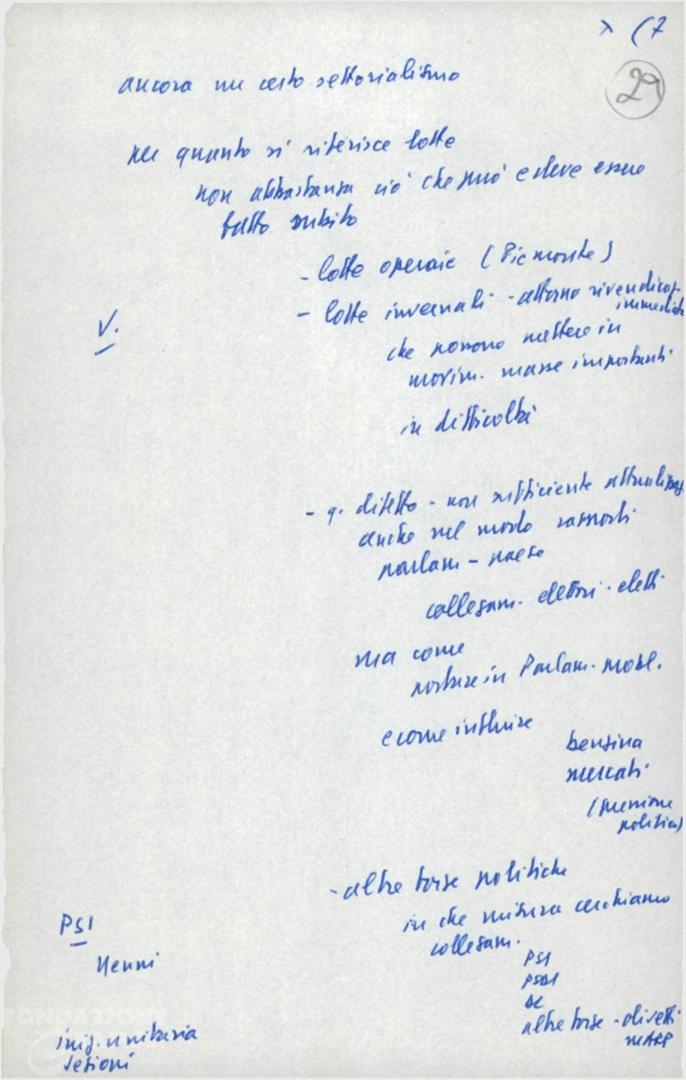 > (7
29
ancora un certo settorialismo
per quanto si riferisce lotte
non abbastanza ciò che può e deve essere
fatto subito
- lotte operaie (Piemonte)
- lotte invernali - attorno rivendicaz.
immediate
V.
che possono mettere in
movim. masse importanti
in difficoltà
- q. difetto - non sufficiente
anche nel modo rapporti
parlam - paese
collegam. elettori - eletti
ma come
portare in Parlam. probl.
e come influire
benzina
mercati
(pressione
politica)
- altre forze politiche
in che misura cerchiamo
collegam.
PSI
PSDI
DC
altre forze - diretti
MARP
PSI
Nenni
iniz. unitaria
sezioni
FONDAZIONE